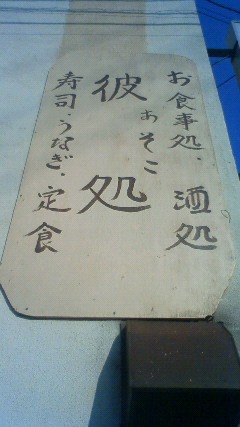 お食事処、酒処
彼処
あそこ
寿司・うなぎ・定食